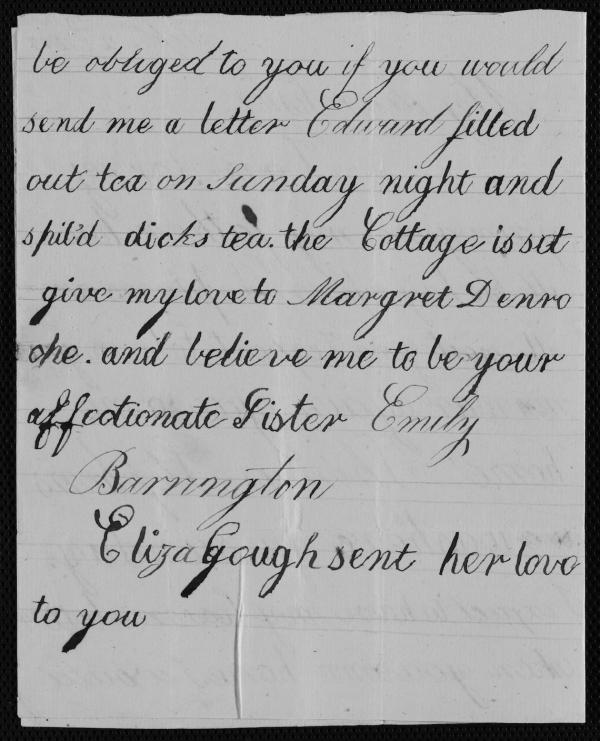 be obliged to you if you would
send me a letter Edward filled
out tea on Sunday night and
spil'd dicks tea. the Cottage is set
give my love to Margret Denro
che. and believe me to be your
affectionate Sister Emily
Barrington
Eliza Gough sent her love
to you